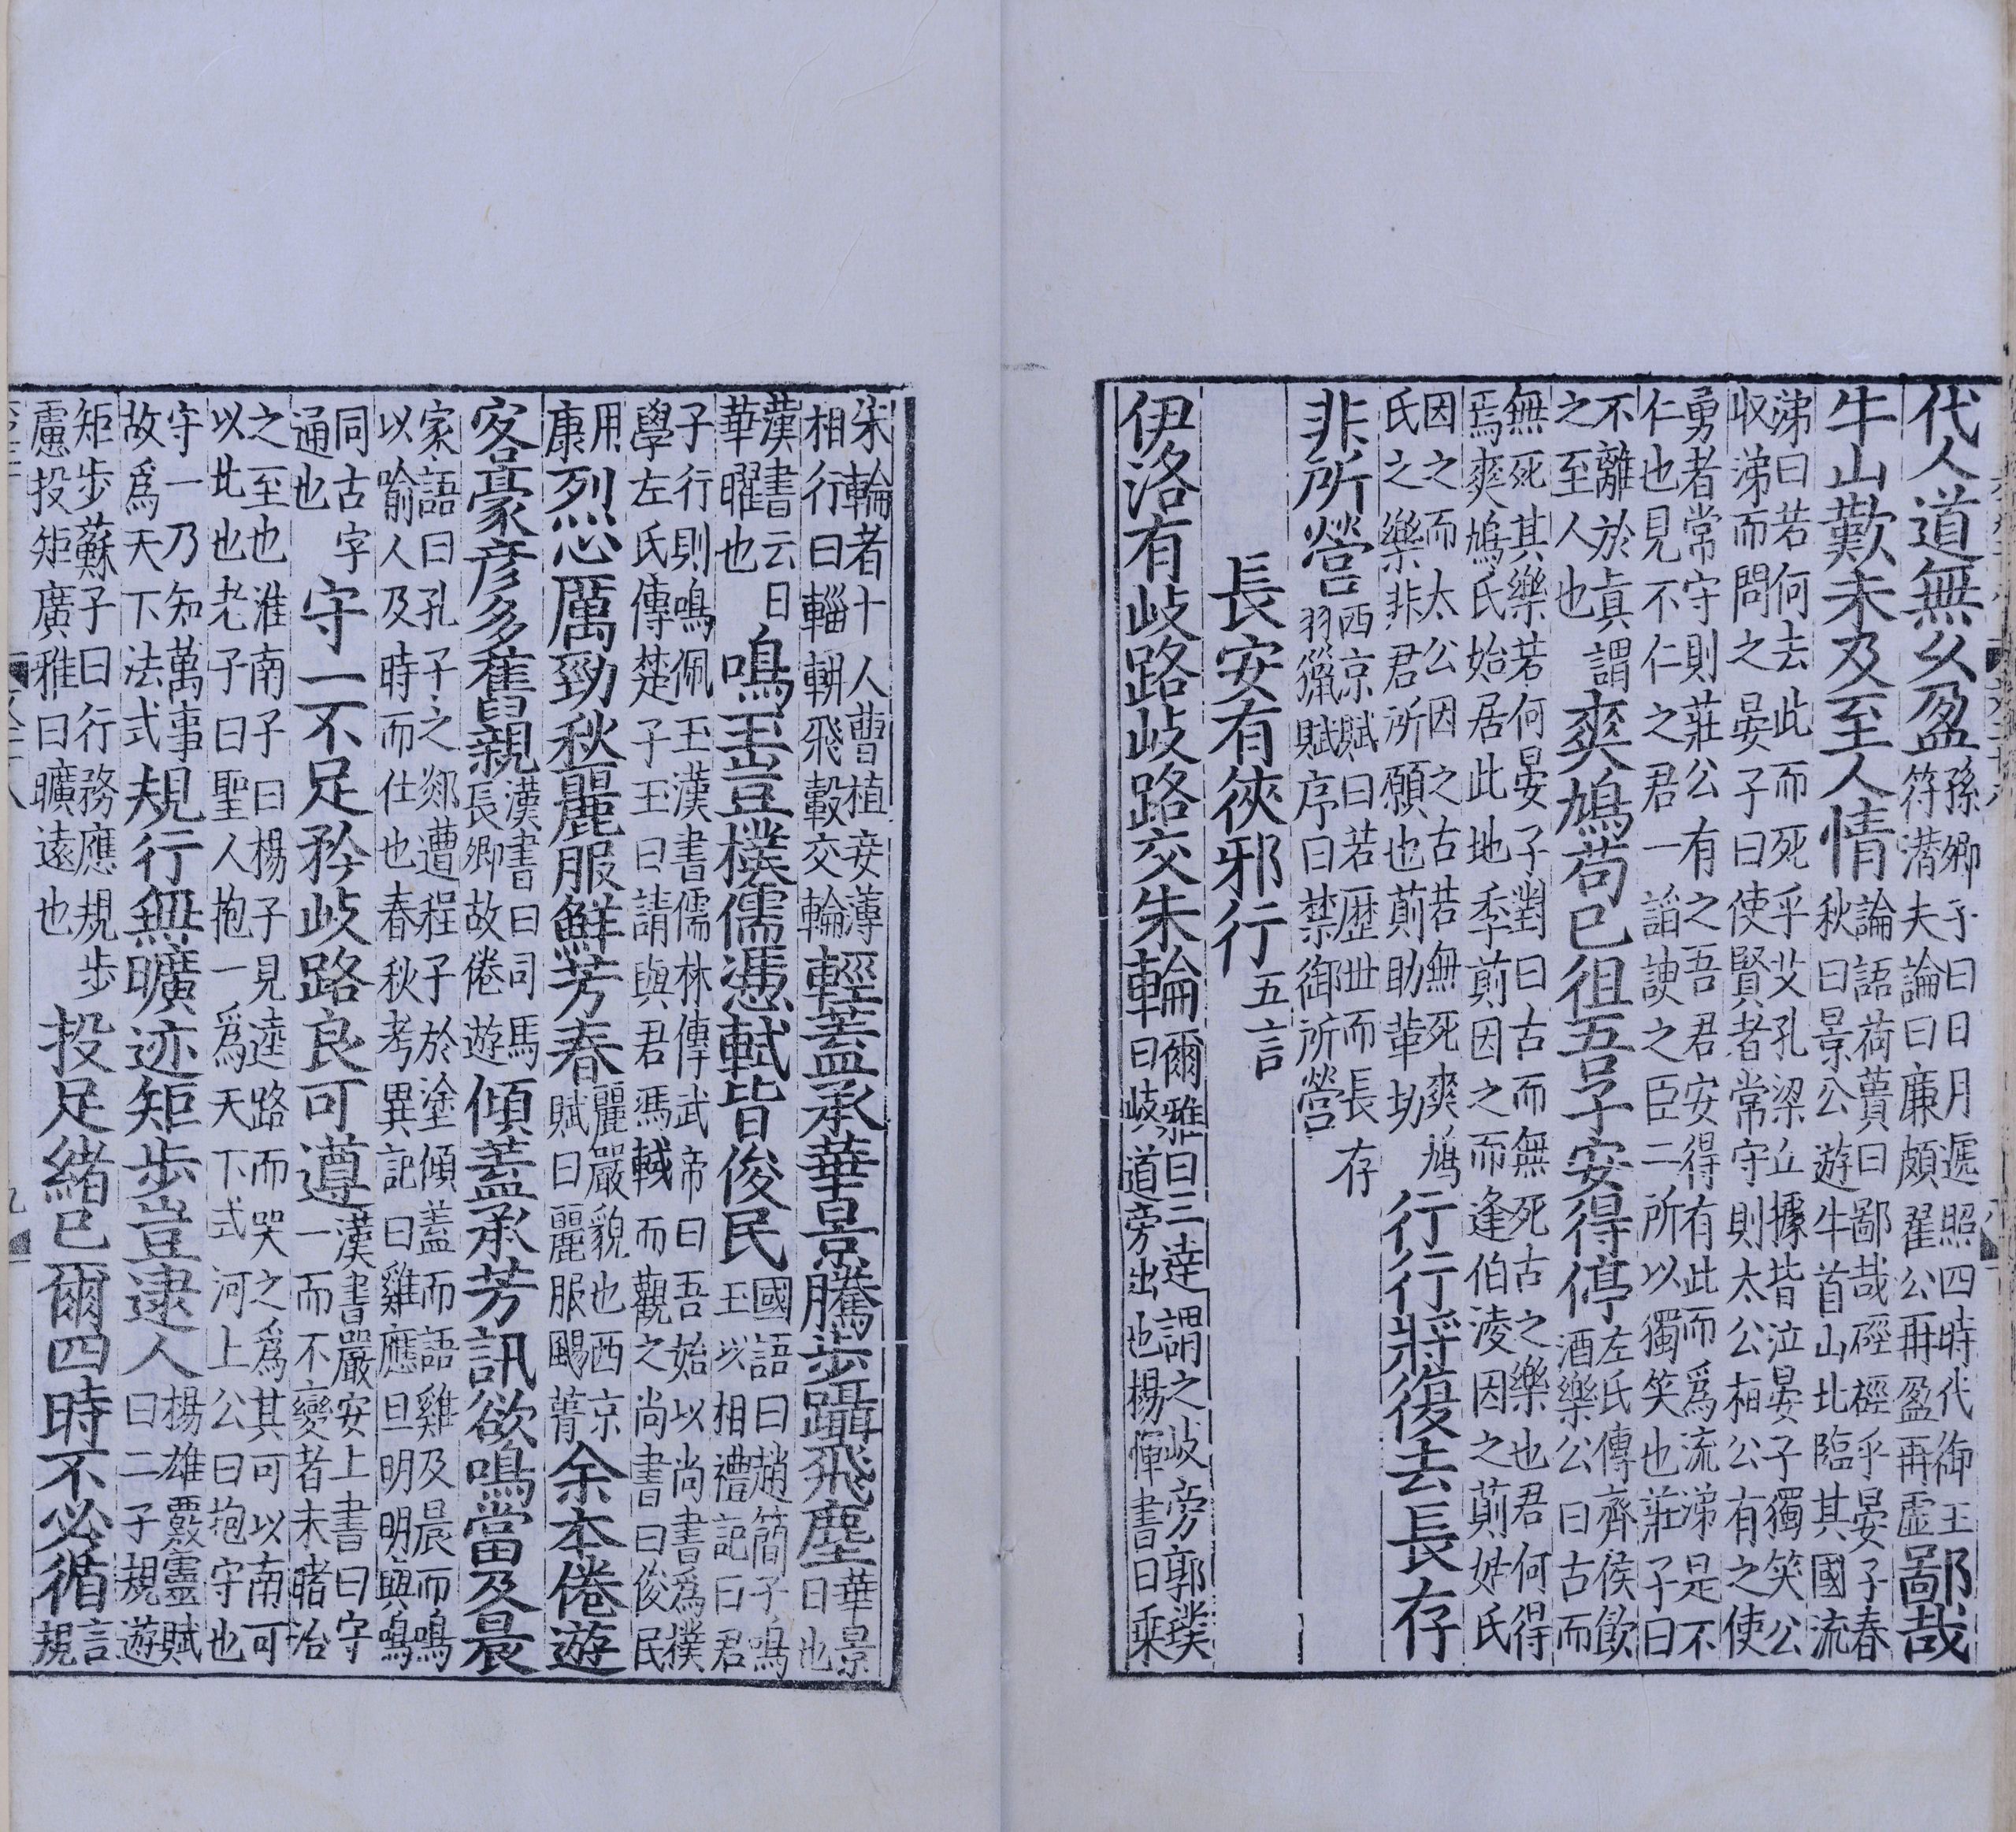 代人道無久盈孫卿子曰日月遞照四時代御王符潛夫論曰廉頗翟公再盈再虛鄙哉
牛山歎未及至人情論語荷蕢曰鄙哉硜硜乎晏子春秋曰景公遊牛首山北臨其國流
涕曰若何去此而死乎艾孔梁丘據皆泣晏子獨笑公收涕而問之晏子曰使賢者常守則太公栢公有之使
勇者常守則莊公有之吾君安得有此而爲流涕是不仁也見不仁之君一諂諛之臣二所以獨笑也莊子曰
不離於真謂之至人也爽鳩苟已徂吾子安得停左氏傳齊侯飲酒樂公曰古而
無死其樂若何晏子對曰古而無死古之樂也君何得焉爽鳩氏始居此地季萴因之而逢伯淩因之萴姓氏
因之而太公因之古若無死爽鳩氏之樂非君所願也萴助革切行行將復去長存
非所營西京賦曰若歷世而長存羽獵賦序曰禁御所營
長安有俠邪行五言
伊洛有歧路歧路交朱輪爾雅曰三達謂之歧旁郭璞曰歧道旁出也楊惲書曰乘
朱輪者十人曹植妾薄相行曰輜軿飛轂交輪輕蓋承華景騰步躡飛塵華景日也
漢書云日華曜也鳴玉豈樸儒憑軾皆俊民國語曰趙簡子鳴玉以相禮記曰君
子行則鳴佩玉漢書儒林傳武帝曰吾始以尚書爲樸學左氏傳楚子玉曰請與君馮軾而觀之尚書曰俊民
用康烈心厲勁秋麗服鮮芳春麗嚴貌也西京賦曰麗服颺菁余本倦遊
客豪彥多舊親漢書曰司馬長卿故倦遊傾蓋承芳訊欲鳴當及晨
家語曰孔子之郯遭程子於塗傾蓋而語雞及晨而鳴以喻人及時而仕也春秋考異記曰雞應旦明明與鳴
同古字通也守一不足矜歧路良可遵漢書嚴安上書曰守一而不變者未睹治
之至也淮南子曰楊子見逵路而哭之爲其可以南可以北也老子曰聖人抱一爲天下式河上公曰抱守也
守一乃知萬事故爲天下法式規行無曠迹矩步豈逮人楊雄覈靈賦曰二子規遊
矩步蘇子曰行務應規步慮投矩廣雅曰曠遠也投足緒已爾四時不必循言規